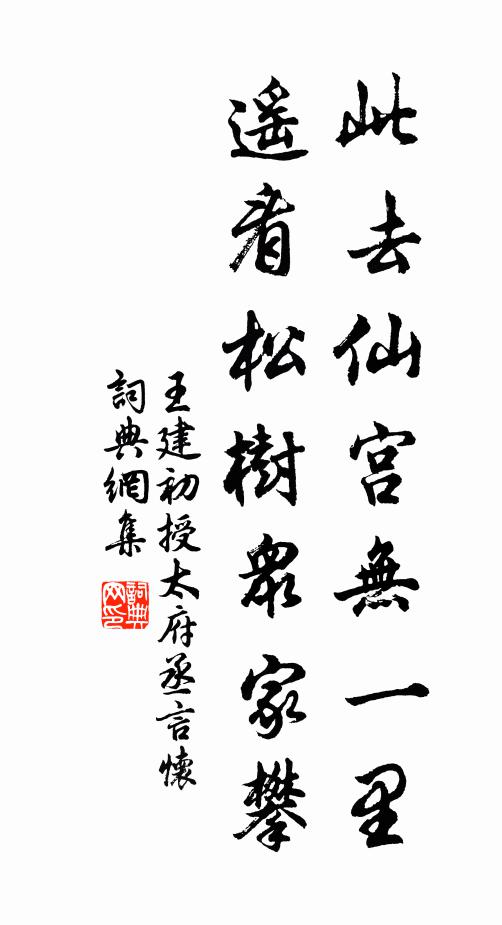 此去仙宮無一里
遥看松樹眾家攀
王建初授太府丞言懷
詞典網集
詞典
网印